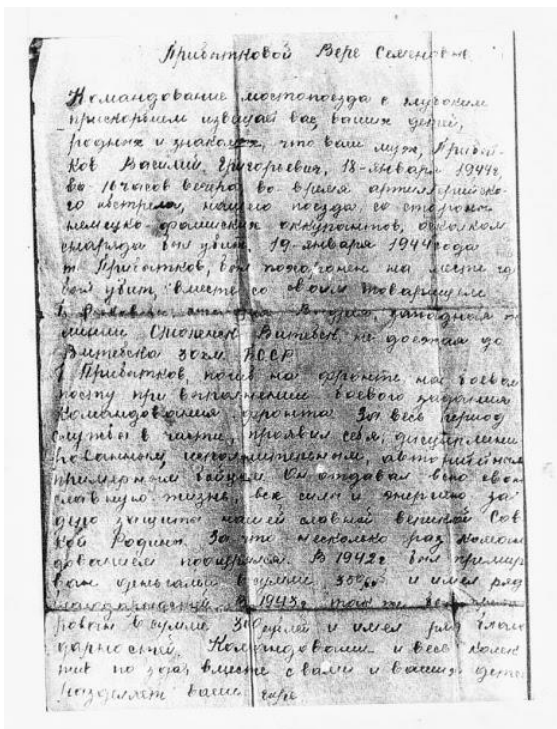 Прибытковой Вере Семеновне
Командование мостопоезда с глубоким
прискорбием извещает вас, ваших детей,
родных и знакомых, что ваш муж, Прибыт-
ков Василий Григорьевич, 18-января 1944г,
во 16 часов вечера во время артиллерийско-
го обстрела, нашего поезда, со стороны
немецко-фашистких оккупантов, осколком
снаряда был убит. 19-января 1944 года
т Прибытков, был похоронен на месте где
был убит, вместе со своим товарищем
западная
линии Смоленск Витебск, не доезжая до
Витебска 30км. БССР
Т Прибытков, погиб на фронте на боевом
посту при выполнении боевого задания
Командования фронта. За весь период
службы в части, проявил себя, дисциплини
рованным, исполнительным, авторитетным
примерным бойцом. Он отдавал всю свою
славную жизнь, все силы и энергию за
дело защиты нашей славной великой Сов
кой Родины. За что несколько раз коман
дованием поощрялся. В 1942г был премир
ван деньгами в сумме и имел ряд
В 1943г так же был преми
рован в сумме рублей и имел ряд благо
дарностей, Командование и весь коллек
тив поезда, вместе с вами и вашими детьми
разделяет ваше горе